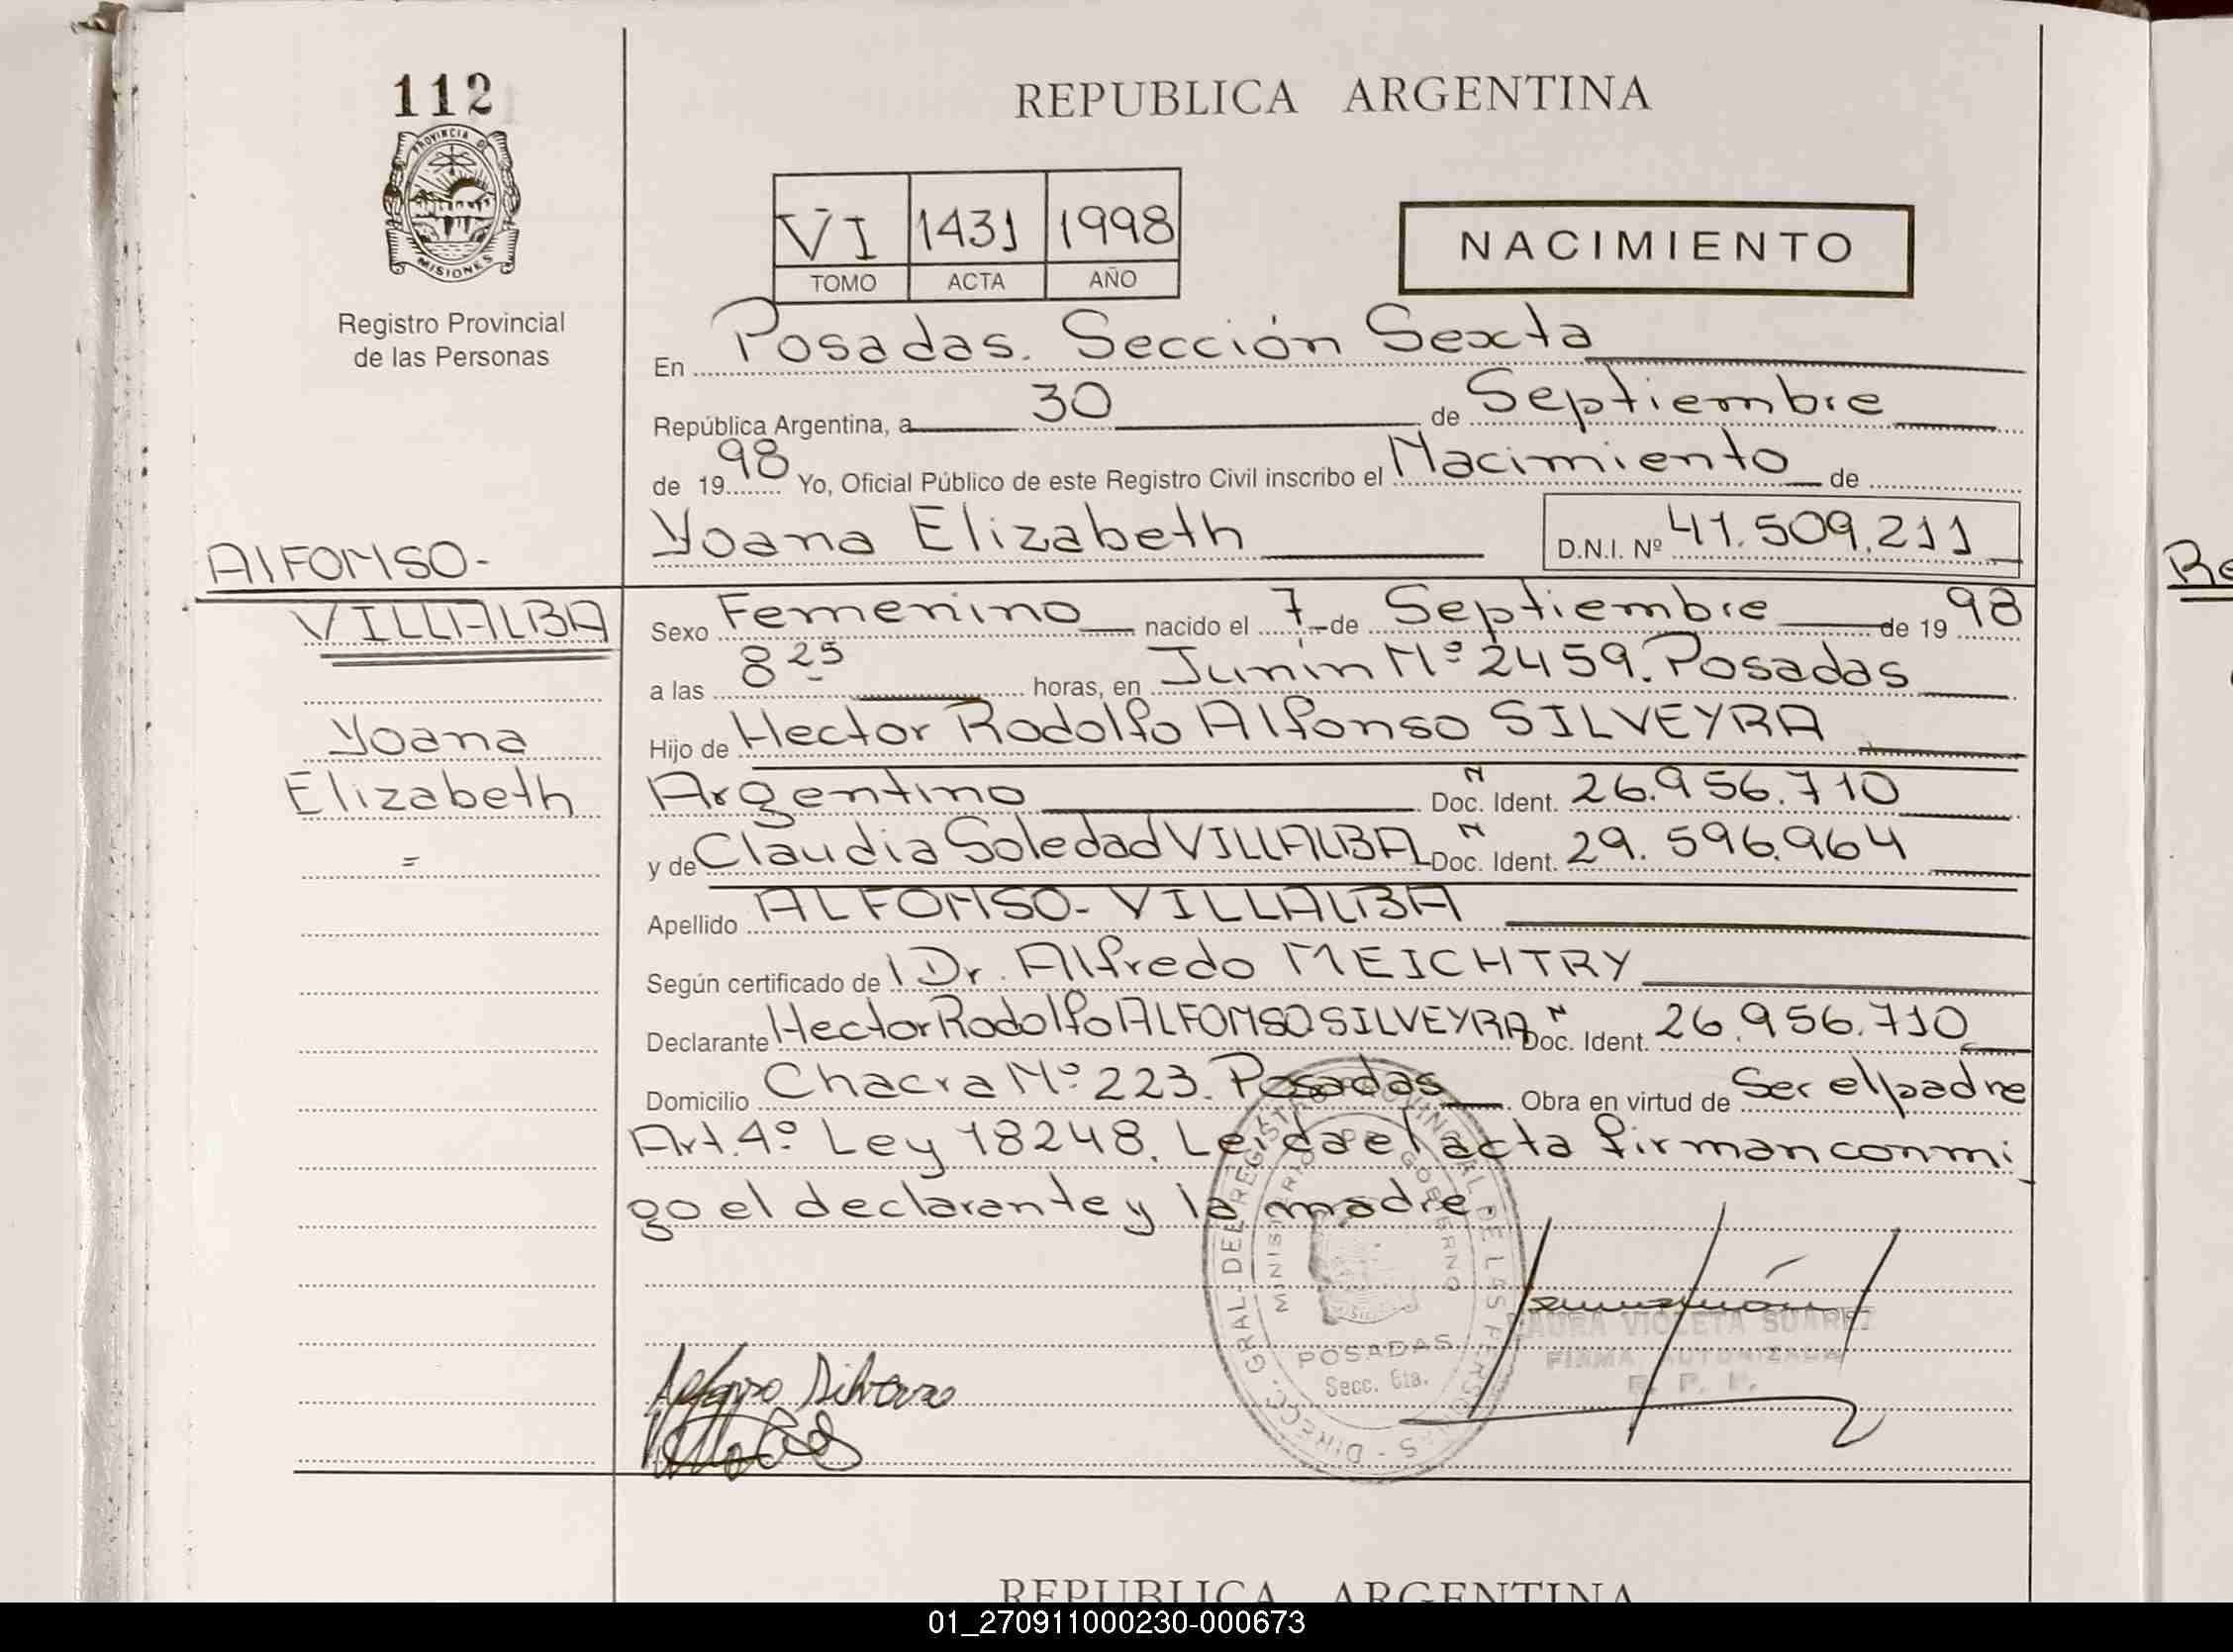 112
REPUBLICA ARGENTINA
PROVINCIA DE
MISIONES
Registro Provincial
de las Personas
VI 1431 1998
TOMO ACTA AÑO
NACIMIENTO
En Posadas. Sección Sexta
República Argentina, a 30 de Septiembre
de 1998 Yo, Oficial Público de este Registro Civil inscribo el Nacimiento de
Yoana Elizabeth D.N.I. Nº 41.509.211
ALFONSO-
VILLALBA
Yoana
Elizabeth
=
Sexo Femenino nacido el 7 de Septiembre de 1998
a las 8 25 horas, en Junín Nº 2459. Posadas
Hijo de Hector Rodolfo Alfonso SILVEYRA
Argentino Doc. N Ident. 26.956.710
y de Claudia Soledad VILLALBA Doc. N Ident. 29.596.964
Apellido ALFONSO-VILLALBA
Según certificado de l Dr. Alfredo MEICHTRY
Declarante Hector Rodolfo ALFONSO SILVEYRA Doc. N Ident. 26.956.710
Domicilio Chacra Nº 223. Posadas. Obra en virtud de Ser el padre
Art. 4º Ley 18248. Leída el acta firman conmi
go el declarante y la madre.
DIRECC. GRAL. DEL REGISTRO PROVINCIAL DE LAS PERSONAS
MINISTERIO DE GOBERNO
POSADAS
Secc. 6ta.
LAURA VIOLETA SUAREZ
FIRMA AUTORIZADA
R. P. P.
REPUBLICA ARGENTINA
01_270911000230-000673